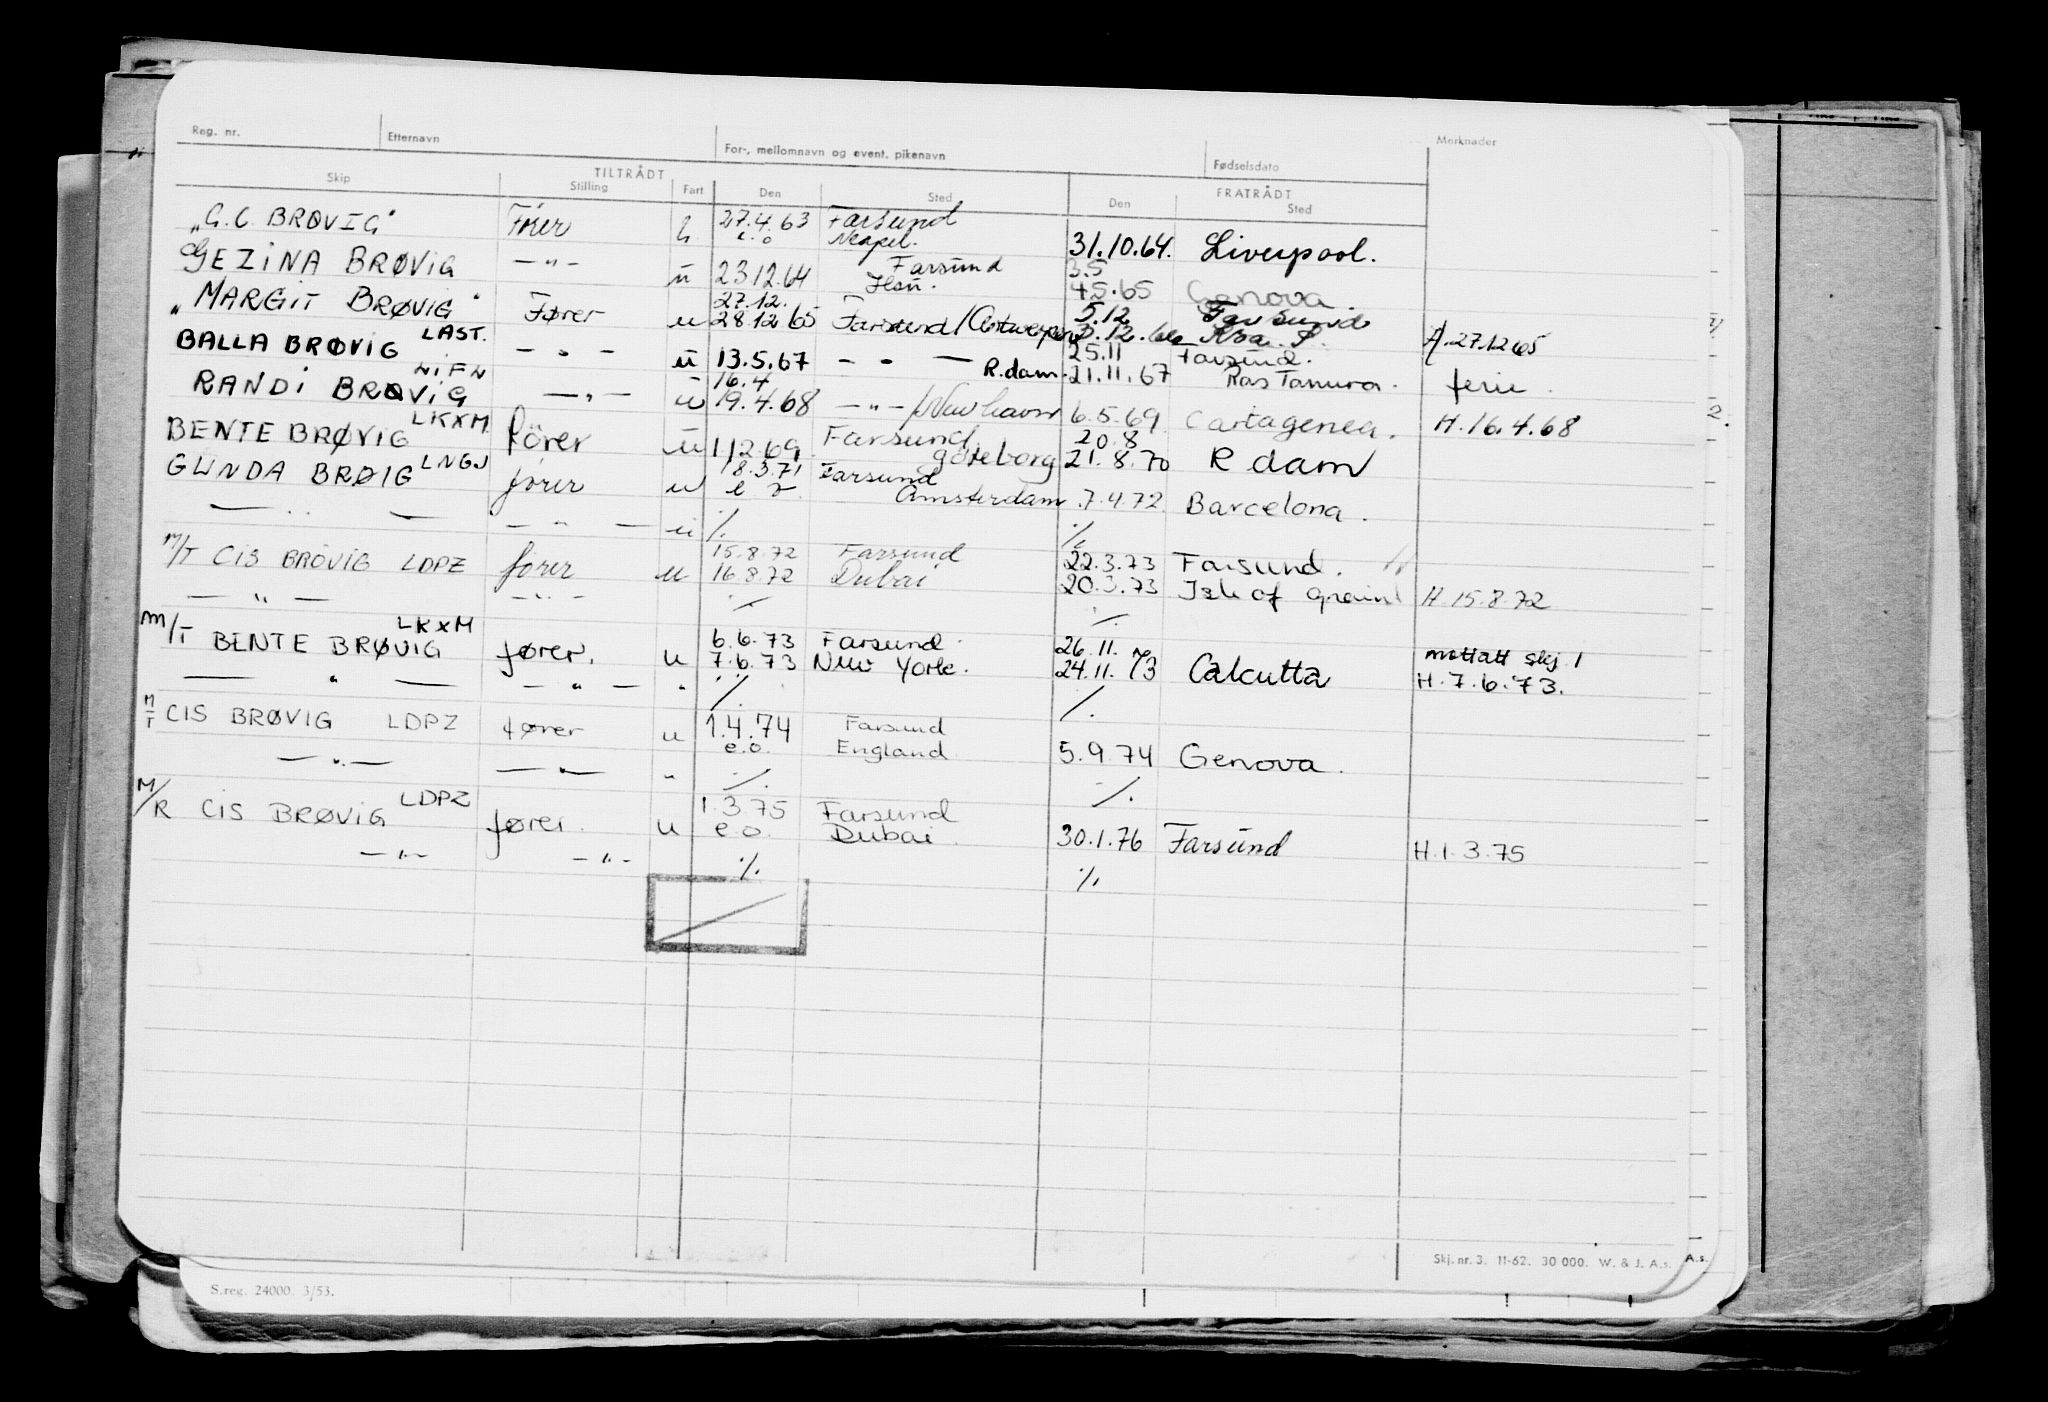 Reg. nr. Etternavn For-, mellomnavn og event. pikenavn Fødselsdato Merknader
TILTRÅDT FRATRÅDT
Skip Stilling Fart Den Sted Den Sted
"G.C. BRØVIG" Fører 27.4.63 Farsund
e.o Neapel. 31.10.64. Liverpool.
GEZINA BRØVIG —"— u 23.12.64 Farsund 3.5
4.5.65 Genova.
"MARGIT BRØVIG" Fører u 27.12. 5.12 Farsund
28.12.65 Farsund/Antwerpen 3.12.66 27.12.65
BALLA BRØVIG LAST. —"— u 13.5.67 — " — R.dam. 25.11 Farsund.
21.11.67 Ras Tanura. ferie.
RANDI BRØVIG —"— u 16.4
19.4.68 —"—/Newhaven 6.5.69 Cartagenea. H.16.4.68
BENTE BRØVIG LKXM fører u 1.12.69 Farsund göteborg 20.8
21.8.70 R dam
GUNDA BRØIG LNGJ fører u 18.3.71 Farsund
e o Amsterdam 7.4.72. Barcelona.
— " — — " — u ./. ./.
M/T CIS BRÖVIG LDPZ fører u 15.8.72 Farsund 22.3.73 Farsund.
16.8.72 Dubai 20.3.73 Isle of Grain H.15.8.72
— " — — " — ./. ./.
M/T BENTE BRØVIG LKXM fører. u 6.6.73 Farsund. 26.11.
7.6.73 New York. 24.11.73 Calcutta mottatt skj. 1
H.7.6.73.
— " — — " — " ./. ./.
M/T CIS BRØVIG LDPZ fører u 1.4.74 Farsund
e.o. England 5.9.74 Genova.
— " — — " — " ./. ./.
M/R CIS BRØVIG LDPZ fører. u 1.3.75 Farsund
e.o. Dubai. 30.1.76 Farsund H.1.3.75
— " — — " — ./. ./.
Skj. nr. 3. 11-62. 30 000. W. & J. A.s. A.s.
S.reg. 24000. 3/53.